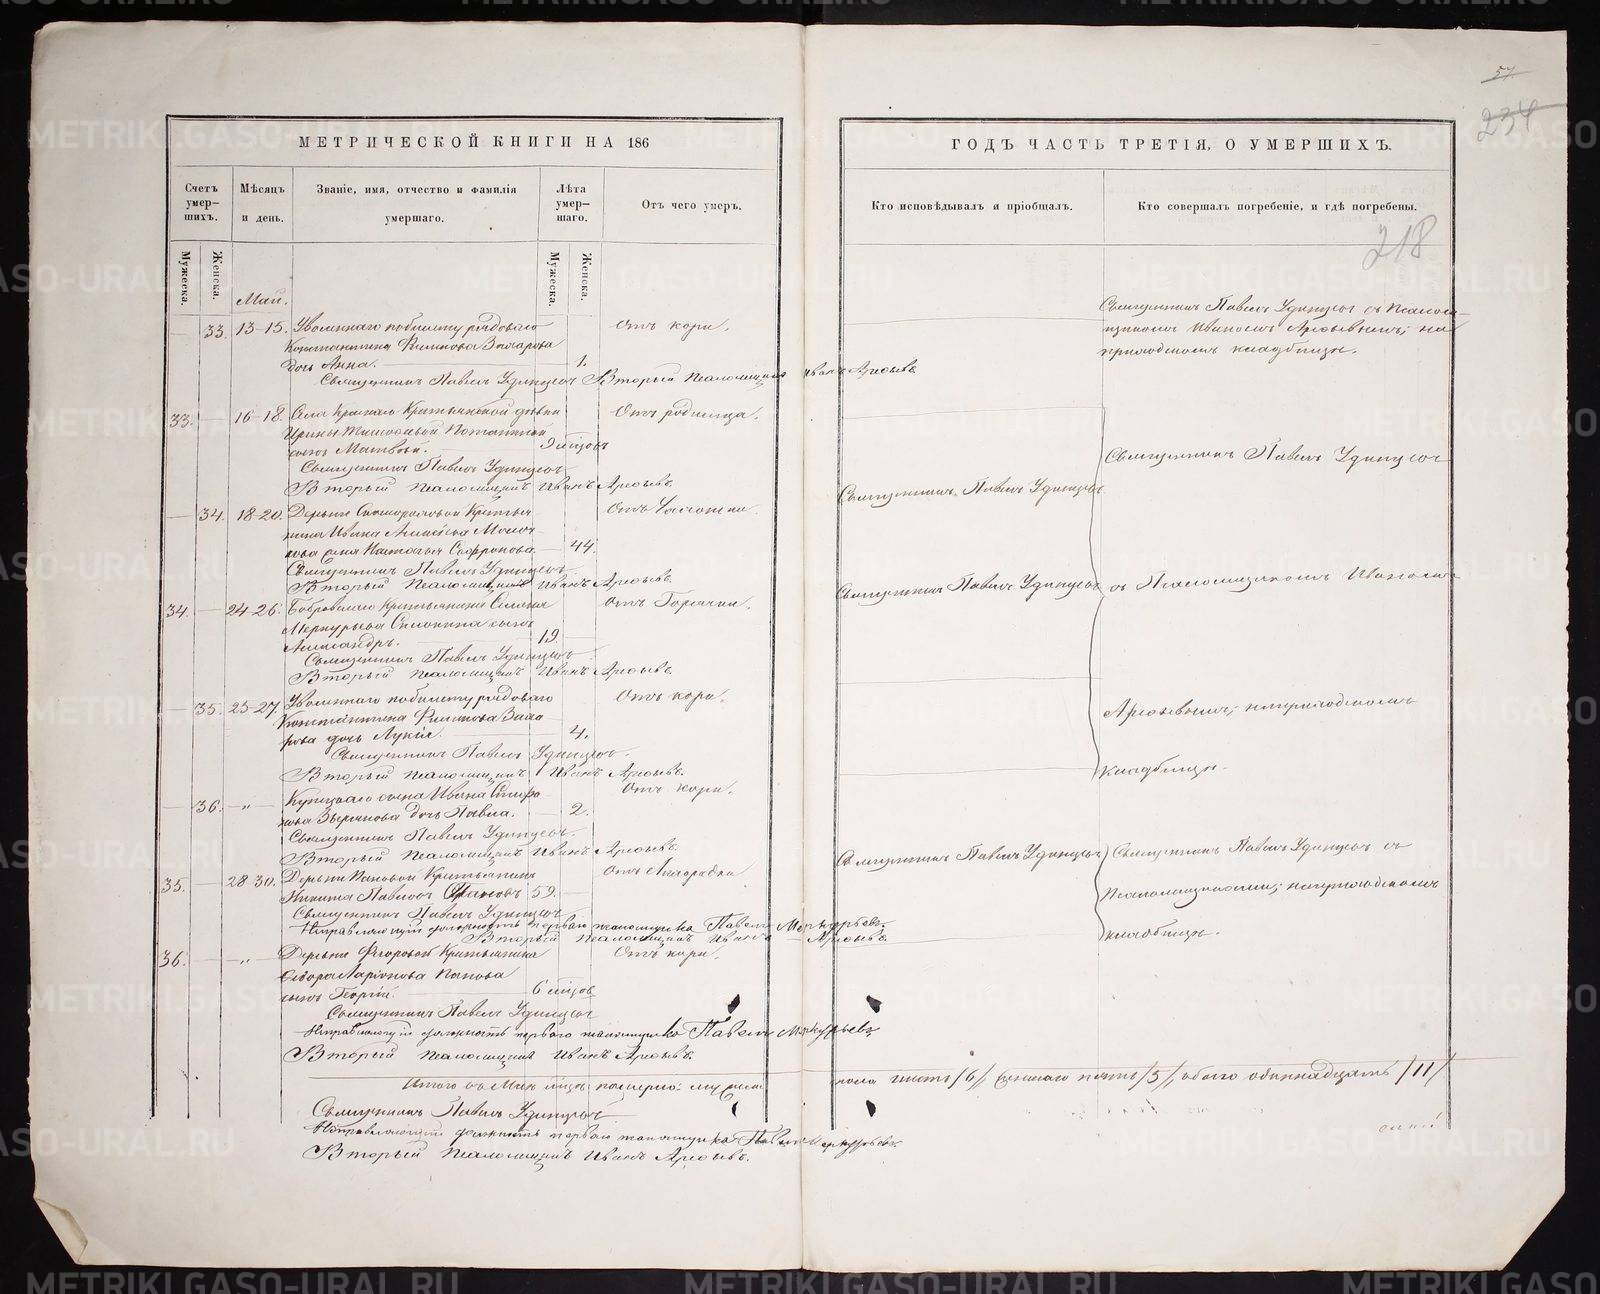 57
234
МЕТРИЧЕСКОЙ КНИГИ НА 186
Счетъ умер-шихъ.
Мѣсяцъ и день.
Званіе, имя, отчество и фамилія умершаго.
Лѣта умер-шаго.
Отъ чего умеръ.
Мужеска.
Женска.
Мужеска.
Женска.
Май.
33. 13-15. Уволеннаго по билету рядоваго Отъ кори.
Константина Филипова Захарова
дочь Анна. 1.
Священникъ Павелъ Удинцовъ Вторый Псаломщикъ Иванъ Арефьевъ
33. 16-18. Села Крестьянской дѣвки Отъ родимца.
Ирины
сынъ Матвей. 9 мѣсяцовъ
Священникъ Павелъ Удинцовъ
Вторый Псаломщикъ Иванъ Арефьевъ.
34. 18-20. Деревни Крестья Отъ Чахотки.
нина Ивана Алексѣева
жена Наталья Софронова. 44.
Священникъ Павелъ Удинцовъ
Вторый Псаломщикъ Иванъ Арефьевъ.
34. 24-26. Бобровскаго Крестьянина Семена отъ Горячки.
Меркурьева сынъ
Александръ. 19.
Священникъ Павелъ Удинцовъ
Вторый Псаломщикъ Иванъ Арефьевъ.
35. 25-27. Уволеннаго по билету рядоваго Отъ кори.
Константина Филипова Заха
рова дочь Лукія. 4.
Священникъ Павелъ Удинцовъ.
Вторый Псаломщикъ Иванъ Арефьевъ.
36. -„- Купецкаго сына Ивана Отъ кори.
дочь Павла. 2.
Священникъ Павелъ Удинцовъ.
Вторый Псаломщикъ Иванъ Арефьевъ.
35. 28-30. Деревни Крестьянинъ отъ
Никита Павловъ 59.
Священникъ Павелъ Удинцовъ
Исправляющій должность перваго псаломщика Павелъ Меркурьевъ.
Вторый Псаломщикъ Иванъ Арефьевъ.
36. -„- Деревни Крестьянина Отъ кори.
Ларіонова Попова
сынъ Георгій. 6 мѣсяцов
Священникъ Павелъ Удинцовъ
Исправляющій должность перваго псаломщика Павелъ Меркурьевъ
Вторый Псаломщикъ Иванъ Арефьевъ.
Итого въ Маѣ мѣсяцѣ померло: мужеска
Священникъ Павелъ Удинцовъ
Исправляющій должность перваго псаломщика Павелъ Меркурьевъ
Вторый Псаломщикъ Иванъ Арефьевъ.
ГОДЪ ЧАСТЬ ТРЕТІЯ, О УМЕРШИХЪ.
Кто исповѣдывалъ и пріобщалъ.
Кто совершалъ погребеніе, и гдѣ погребены.
218
Священникъ Павелъ Удинцовъ съ Псалом-
щикомъ Иваномъ Арефьевымъ; на
приходскомъ кладбищѣ.
Священникъ Павелъ Удинцовъ
Священникъ Павелъ Удинцовъ
Священникъ Павелъ Удинцовъ съ Псаломщикомъ Иваномъ
Арефьевымъ; на приходскомъ
кладбищѣ.
Священникъ Павелъ Удинцовъ Священникъ Павелъ Удинцовъ съ
Псаломщиками; на приходскомъ
кладбищѣ.
пола шесть /6/, женскаго пять /5/, обоего одиннадцать /11/
METRIKI.GASO-URAL.RU